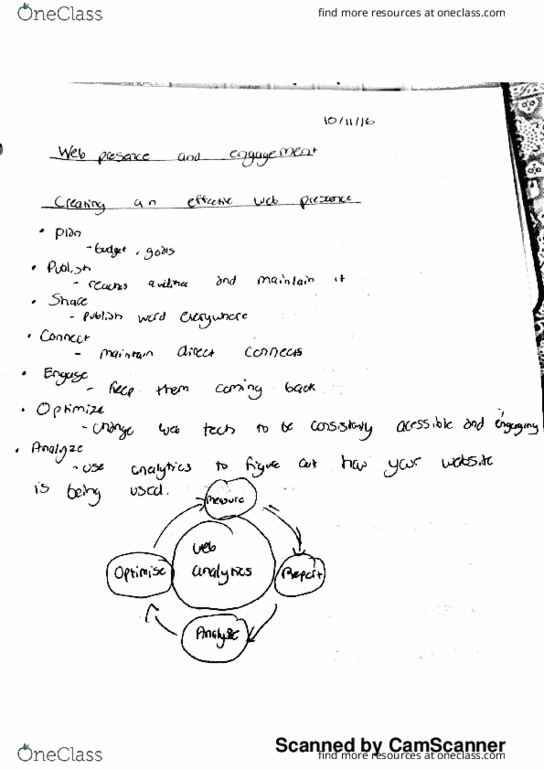 OneClass
find more resources at oneclass.com
10/11/16
Web presence and engagement
Creating an effective web presence
• Plan
- budget, goals
• Publish
- reaches audience and maintain it
• Share
- publish word everywhere
• Connect
- maintain direct connects
• Engage
- keep them coming back
• Optimize
- change web tech to be consistently acessible and engaging
• Analyze
- use analytics to figure out how your website
is being used.
Measure
web
analytics
Optimise
Report
Analyze
Scanned by CamScanner
OneClass
find more resources at oneclass.com